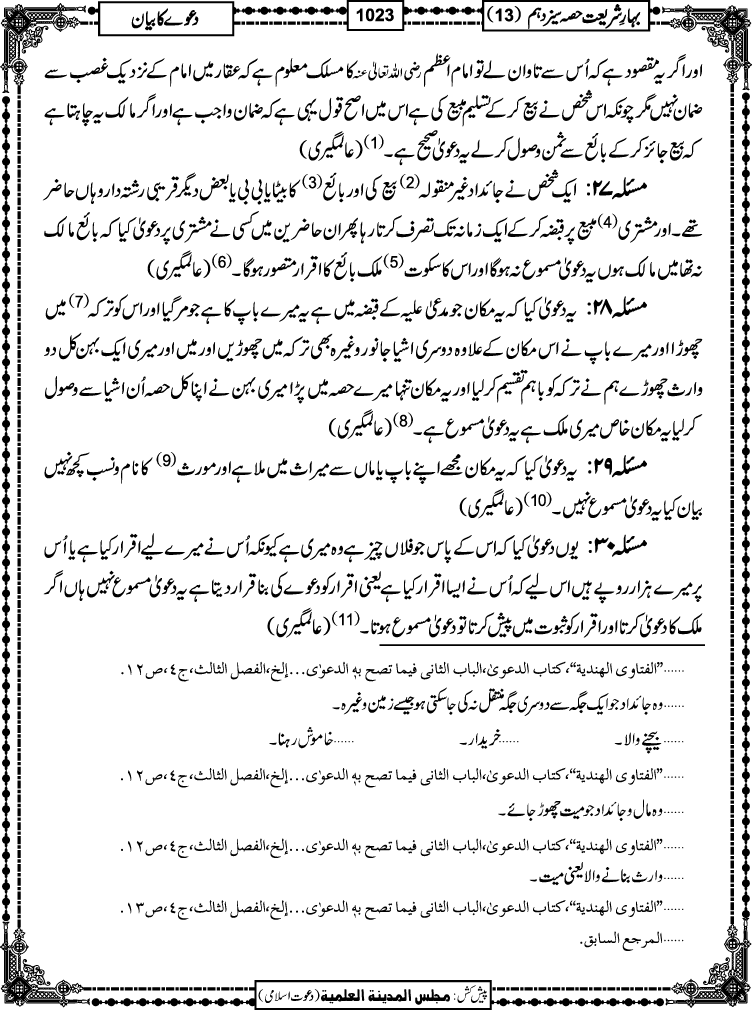 بہارِ شریعت حصہ سیزدہم (13)
1023
دعوے کا بیان
اور اگر یہ مقصود ہے کہ اُس سے تاوان لے تو امام اعظم رضی اللہ تعالیٰ عنہ کا مسلک معلوم ہے کہ عقار میں امام کے نزدیک غصب سے
ضمان نہیں مگر چونکہ اس شخص نے بیع کر کے تسلیم مبیع کی ہے اس میں اصح قول یہی ہے کہ ضمان واجب ہے اور اگر مالک یہ چاہتا ہے
کہ بیع جائز کر کے بائع سے ثمن وصول کرلے یہ دعویٰ صحیح ہے۔(1) (عالمگیری)
مسئلہ ۲۷: ایک شخص نے جائداد غیر منقولہ(2) بیع کی اور بائع(3) کا بیٹا یا بی بی یا بعض دیگر قریبی رشتہ دار وہاں حاضر
تھے۔ اور مشتری(4) مبیع پر قبضہ کر کے ایک زمانہ تک تصرف کرتا رہا پھر ان حاضرین میں کسی نے مشتری پر دعویٰ کیا کہ بائع مالک
نہ تھا میں مالک ہوں یہ دعویٰ مسموع نہ ہوگا اور اس کا سکوت(5) ملک بائع کا اقرار متصور ہوگا۔(6) (عالمگیری)
مسئلہ ۲۸: یہ دعویٰ کیا کہ یہ مکان جو مدعیٰ علیہ کے قبضہ میں ہے یہ میرے باپ کا ہے جو مرگیا اور اس کو ترکہ(7) میں
چھوڑا اور میرے باپ نے اس مکان کے علاوہ دوسری اشیا جانور وغیرہ بھی ترکہ میں چھوڑیں اور میں اور میری ایک بہن کل دو
وارث چھوڑے ہم نے ترکہ کو باہم تقسیم کرلیا اور یہ مکان تنہا میرے حصہ میں پڑا میری بہن نے اپنا کل حصہ اُن اشیا سے وصول
کرلیا یہ مکان خاص میری ملک ہے یہ دعویٰ مسموع ہے۔(8) (عالمگیری)
مسئلہ ۲۹: یہ دعویٰ کیا کہ یہ مکان مجھے اپنے باپ یا ماں سے میراث میں ملا ہے اور مورث(9) کا نام و نسب کچھ نہیں
بیان کیا یہ دعویٰ مسموع نہیں۔(10) (عالمگیری)
مسئلہ ۳۰: یوں دعویٰ کیا کہ اس کے پاس جو فلاں چیز ہے وہ میری ہے کیونکہ اُس نے میرے لیے اقرار کیا ہے یا اُس
پر میرے ہزار روپے ہیں اس لیے کہ اُس نے ایسا اقرار کیا ہے یعنی اقرار کو دعوے کی بنا قرار دیتا ہے یہ دعویٰ مسموع نہیں ہاں اگر
ملک کا دعویٰ کرتا اور اقرار کو ثبوت میں پیش کرتا تو دعویٰ مسموع ہوتا۔(11) (عالمگیری)
......”الفتاوى الهندية“، كتاب الدعوىٰ،الباب الثانی فيما تصح به الدعوٰى...إلخ،الفصل الثالث،ج٤،ص١٢.
......وہ جائداد جو ایک جگہ سے دوسری جگہ منتقل نہ کی جاسکتی ہو جیسے زمین وغیرہ۔
......بیچنے والا۔ ......خریدار۔ ......خاموش رہنا۔
......”الفتاوى الهندية“، كتاب الدعوىٰ،الباب الثانی فيما تصح به الدعوٰى...إلخ،الفصل الثالث،ج٤،ص١٢.
......وہ مال و جائداد جو میت چھوڑ جائے۔
......”الفتاوى الهندية“، كتاب الدعوىٰ،الباب الثانی فيما تصح به الدعوٰى...إلخ،الفصل الثالث،ج٤،ص١٢.
......وارث بنانے والا یعنی میت۔
......”الفتاوى الهندية“، كتاب الدعوىٰ،الباب الثانی فيما تصح به الدعوٰى...إلخ،الفصل الثالث،ج٤،ص١٣.
......المرجع السابق.
پیش کش: مجلس المدينة العلمية (دعوت اسلامی)